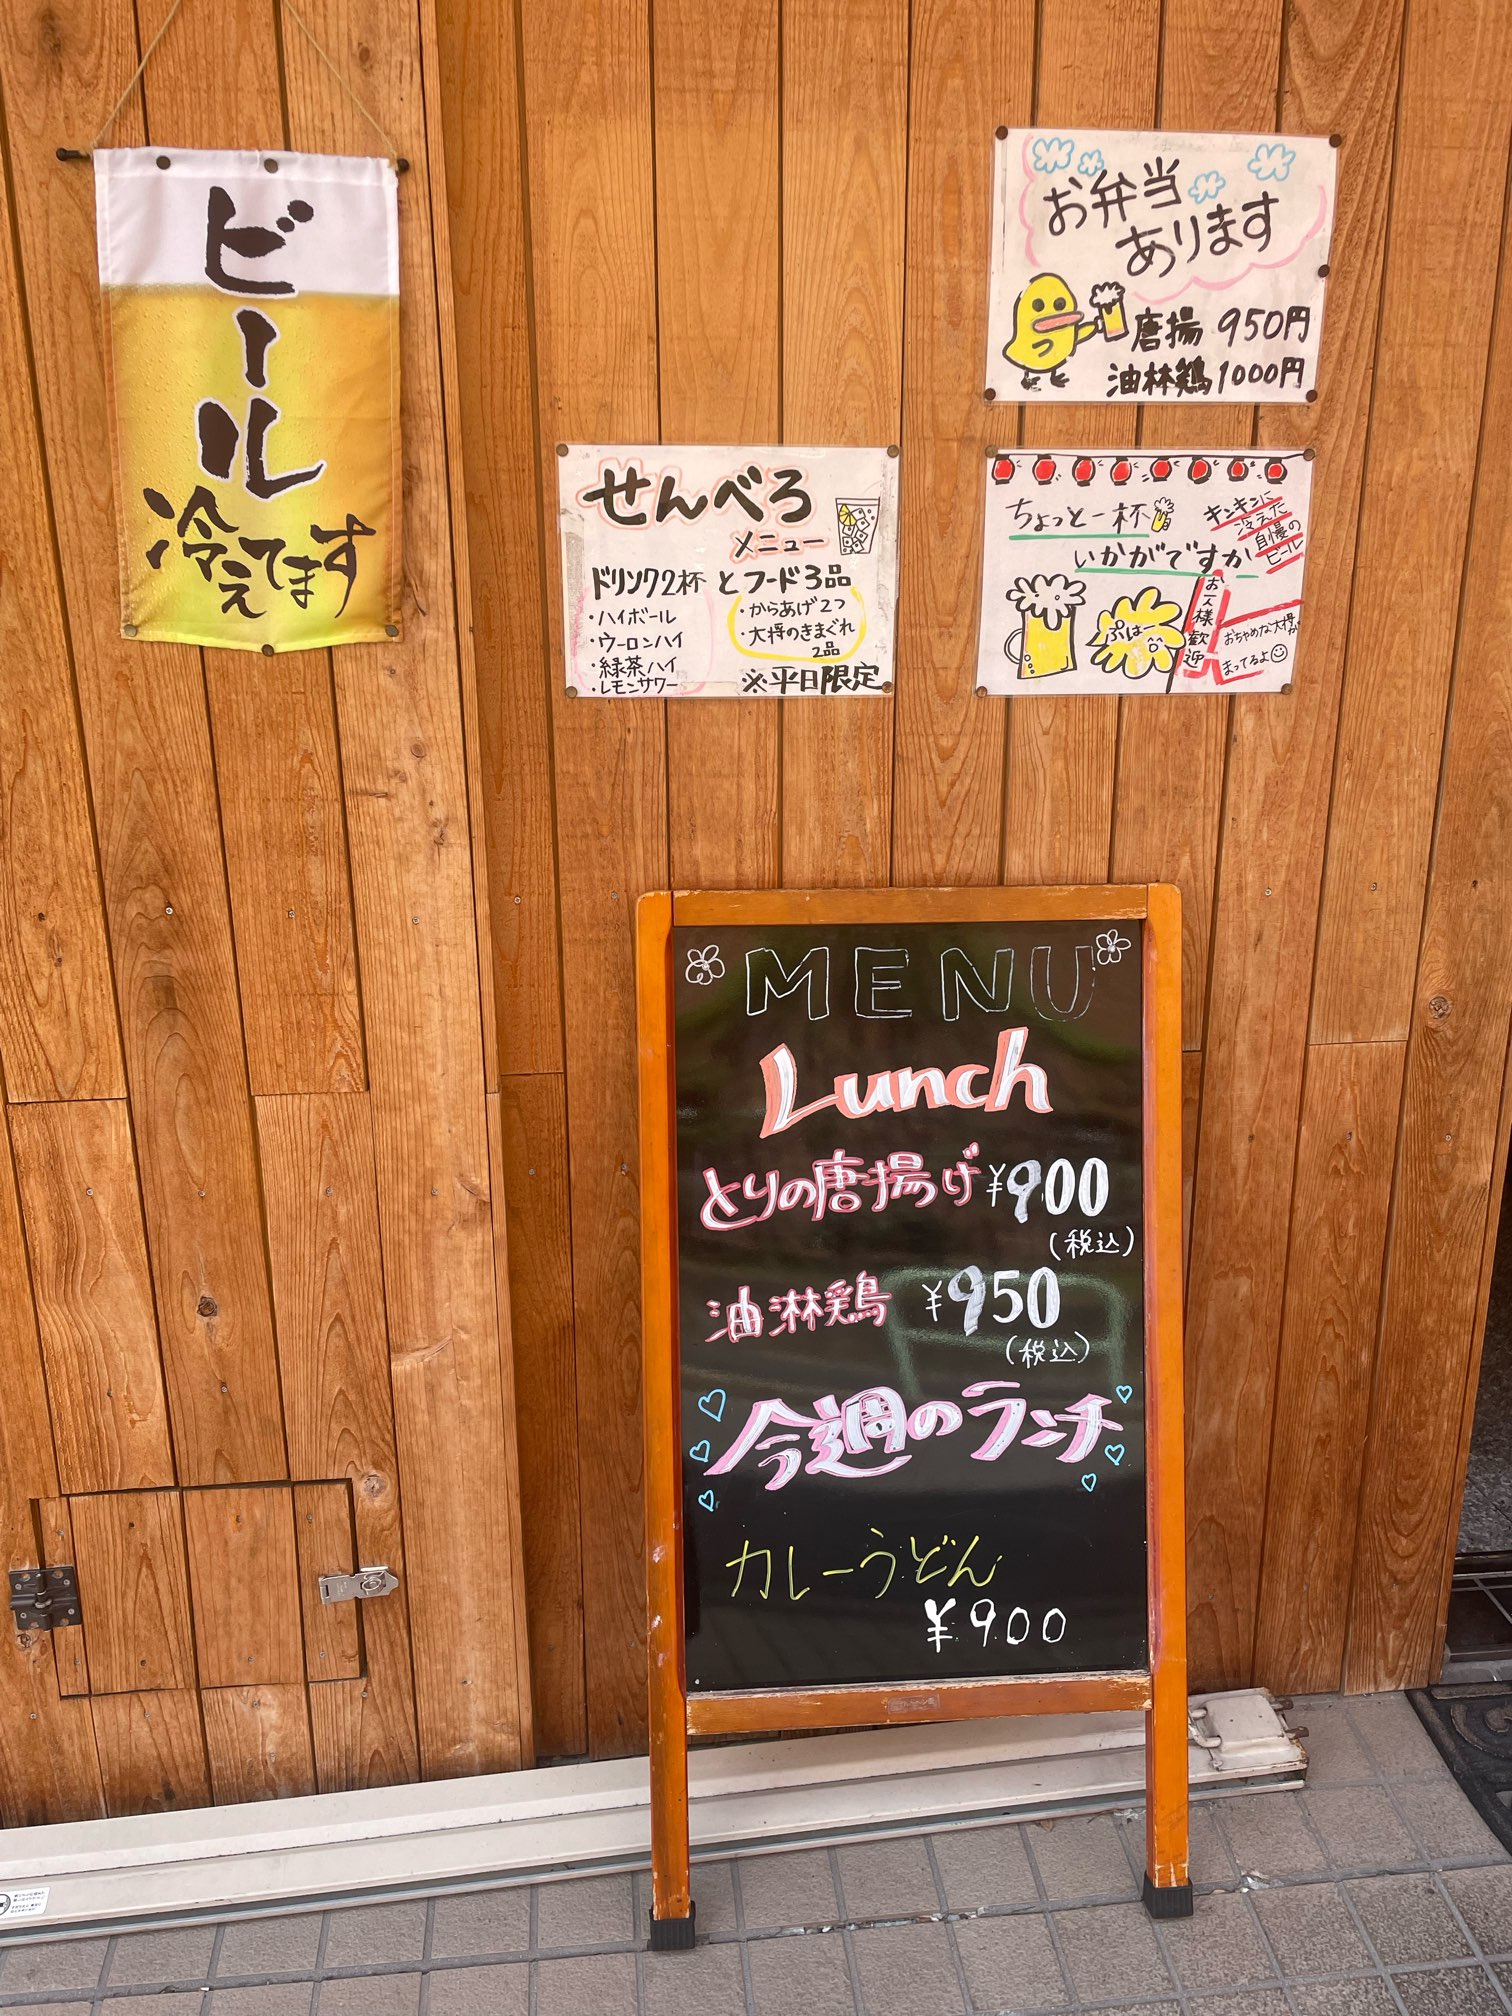 ビール
冷えてます
お弁当
あります
唐揚 950円
油林鶏 1000円
せんべろ
メニュー
ドリンク2杯 とフード3品
・ハイボール
・ウーロンハイ
・緑茶ハイ
・レモンサワー
・からあげ2つ
・大将のきまぐれ
2品
※平日限定
ちょっと一杯
いかがですか
キンキンに
冷えた
自慢の
ビール
ぷはー
お一人様歓迎
おちゃめな大将が
まってるよ
MENU
Lunch
とりの唐揚げ ¥900
(税込)
油淋鶏 ¥950
(税込)
今週のランチ
カレーうどん
¥900